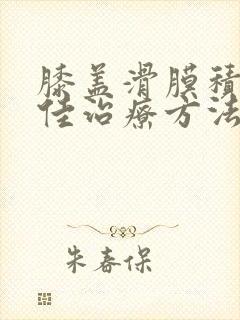 膝盖滑膜积
佳治疗方法
朱春保